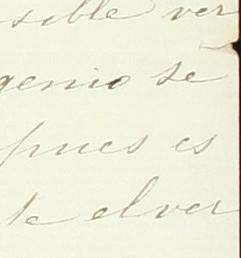 sible ver
genio se
pues es
te el ver